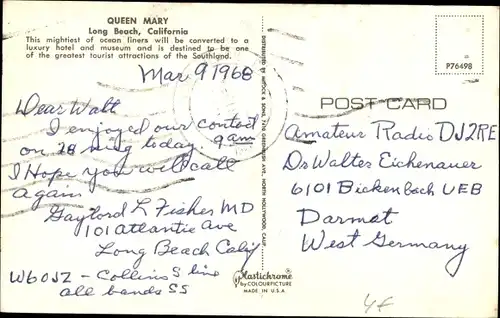 QUEEN MARY
Long Beach, California
This mightiest of ocean liners will be converted to a
luxury hotel and museum and is destined to be one
of the greatest tourist attractions of the Southland.
Mar 9 1968
Dear Walt
I enjoyed our contact
on 28 today. 9 am
I Hope you will call
again.
Gaylord L Fisher MD
101 Atlantic Ave
Long Beach Calif
W6OJZ - Collins S line
all bands SS
DISTRIBUTED BY MITOCK & SONS, NORTH HOLLYWOOD, CALIF.
Plastichrome
by COLOURPICTURE
MADE IN U.S.A.
P76498
POST CARD
Amateur Radio DJ2RE
Dr Walter Eichenauer
6101 Bickenbach UEB
Darmat
West Germany